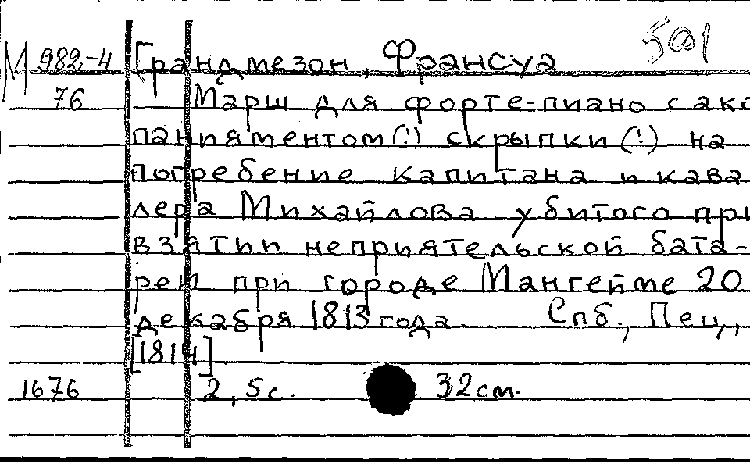 М 982-4 Грандмезон, Франсуа 501
76 Марш для форте-пиано с акс
панияментом(!) скрыпки(!) на
погребение капитана и кава
лера Михайлова убитого при
взятии неприятельской бата-
реи при городе Мангейме 20
декабря 1813 года. Спб., Пец,,
[1814]
1676 2, 5с. 32см.